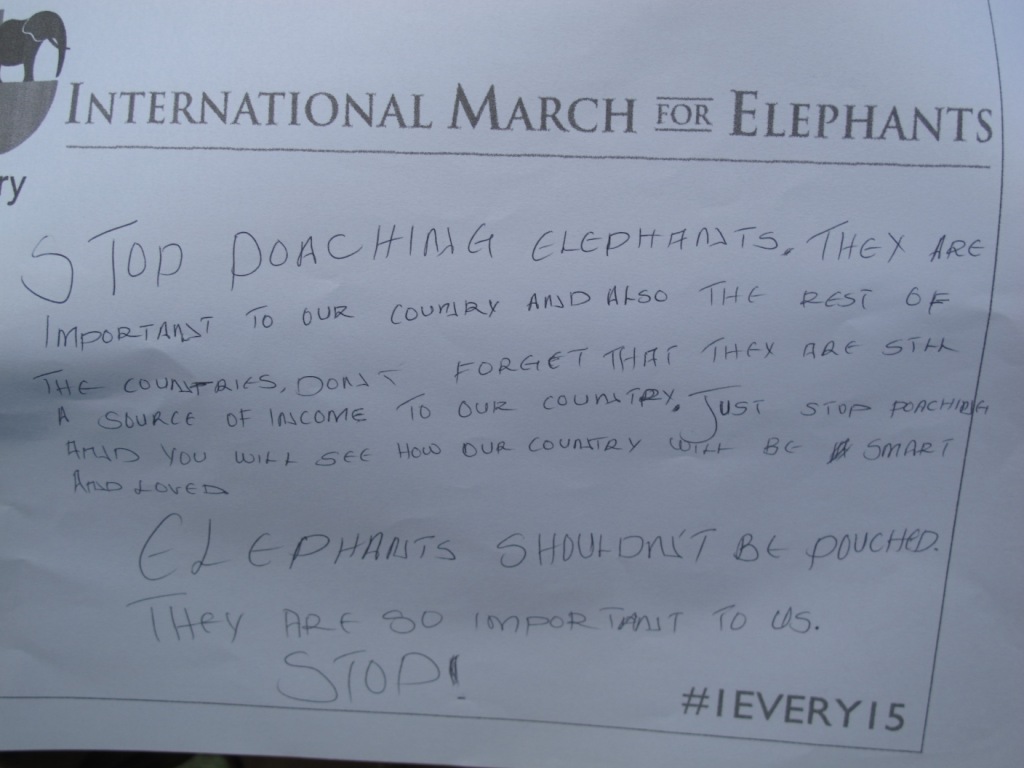 INTERNATIONAL MARCH FOR ELEPHANTS
ry
STOP POACHING ELEPHANTS. THEY ARE
IMPORTANT TO OUR COUNTRY AND ALSO THE REST OF
THE COUNTRIES, DON'T FORGET THAT THEY ARE STILL
A SOURCE OF INCOME TO OUR COUNTRY. JUST STOP POACHING
AND YOU WILL SEE HOW OUR COUNTRY WILL BE SMART
AND LOVED
ELEPHANTS SHOULDN'T BE POUCHED.
THEY ARE SO IMPORTANT TO US.
STOP!
#1EVERY15